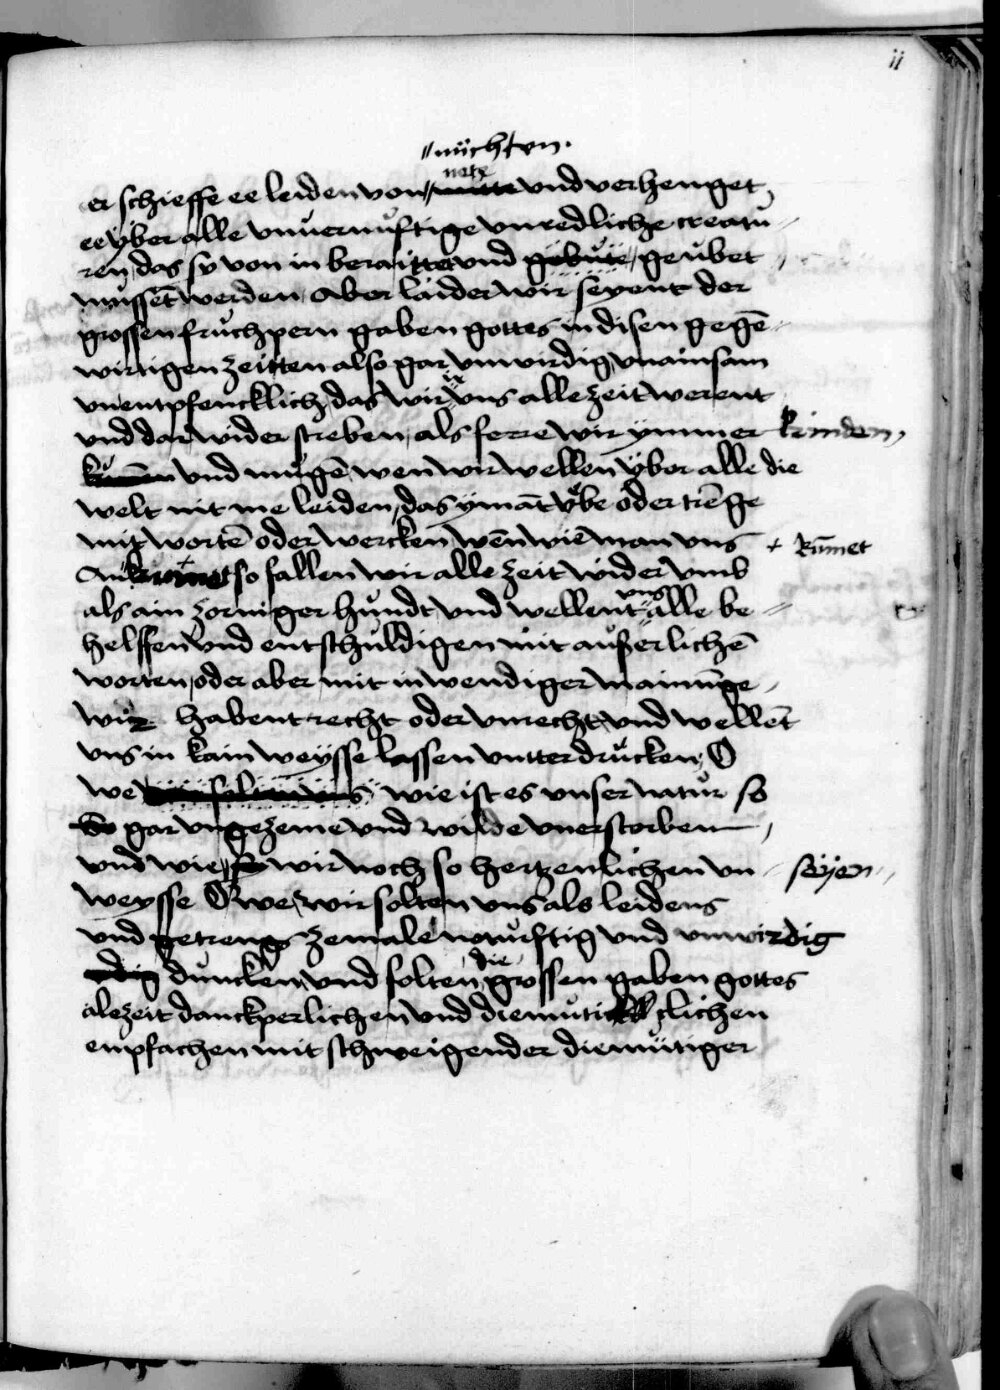 ii
nüchten.
natz
er schieffe ee leiden von nutte und verhenget,
ee yber alle unuernůftige unredliche creatu
ren, das sy von in beraittet und gebute, geůbet
můssēt werden, Aber laider wir seyent der
grossen frůchpern gaben gottes in disen gegē
wirtigen zeitten also gar unwirdig, unainsam
unentpfencklich, das wir uns alle zeit werent
und dar wider streben, als ferre wir ymmer kinden,
kunnen und mugē, wen wir wellen ÿber alle die
welt nit me leiden, das ymāt ube oder trēge
mit wortē oder wercken wēn wie man uns + kūmet
An kumet so fallen wir alle zeit wider umb
uns
als ain zorniger hůndt und wellent alle be
helffen und entschůldigen mit aůserlichē
worten, oder aber mit in wendiger mainūge
wir habent recht oder unrecht, und wellēt
uns in kain weÿsse lassen untterdrůcken, O
we wie ist es unser natůr so
So gar ungezeme und wilde unerstorben,
und wie wir noch so hertzenlichen un seÿen,
weysse O we, wir solten uns als leidens
und getrengs zemale notůrftig und unwirdig
die
udig duncken, und solten grossen gaben gottes
alezeit danckperlichen und diemůti clichen
enpfachen mit schweigender diemůtiger